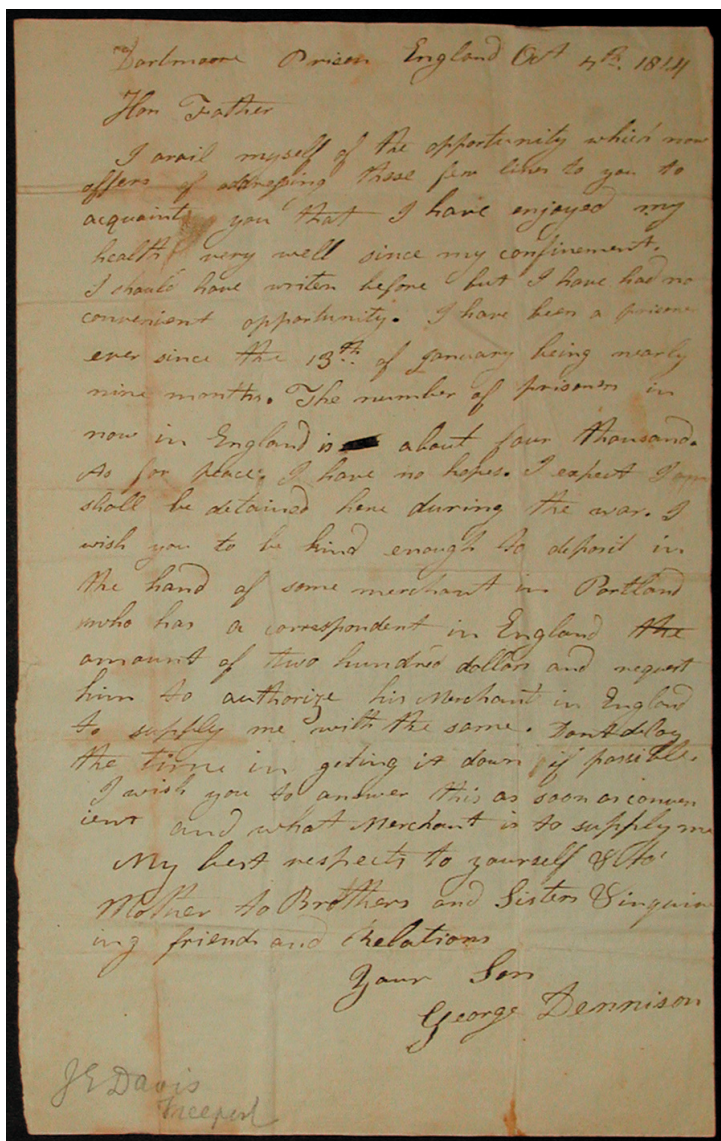 Dartmoore Prison England Oct 4th 1814
Hon Father
I avail myself of the opportunity which now
offers of addressing these few lines to you to
acquaint you that I have enjoyed my
health very well since my confinement.
I should have writen before but I have had no
convenient opportunity. I have been a prisoner
ever since the 13th of January being nearly
nine months. The number of prisoners in
now in England is about four thousand.
As for peace, I have no hopes. I expect I am
shall be detained here during the war. I
wish you to be kind enough to deposit in
the hand of some merchant in Portland
who has a correspondent in England the
amount of two hundred dollars and request
him to authorize his Merchant in England
to supply me with the same. Dont delay
the time in geting it down if possible.
I wish you to answer this as soon as conven
ient and what Merchant is to supply me
My best respects to yourself & to
Mother to Brothers and Sisters & inquir
ing friends and Relations
Your Son
George Dennison
J E Davis
Freeport